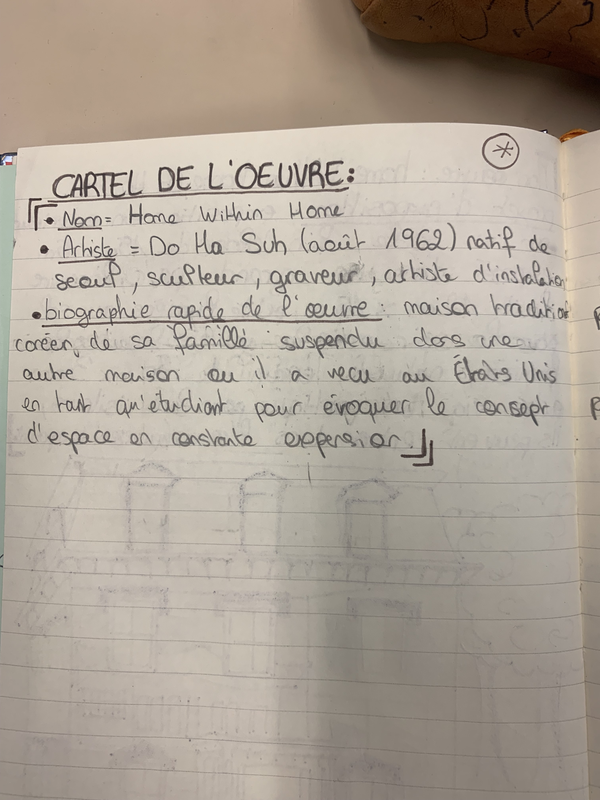 *
CARTEL DE L'OEUVRE:
• Nom = Home Within Home
• Artiste = Do Ha Suh (août 1962) natif de
seoul, sculteur, graveur, artiste d'instalation
• biographie rapide de l'œuvre: maison tradition
coréen de sa famille suspendu dans une
autre maison ou il a vecu au États Unis
en tant qu'étudiant pour évoquer le consept
d'espace en constante expension.